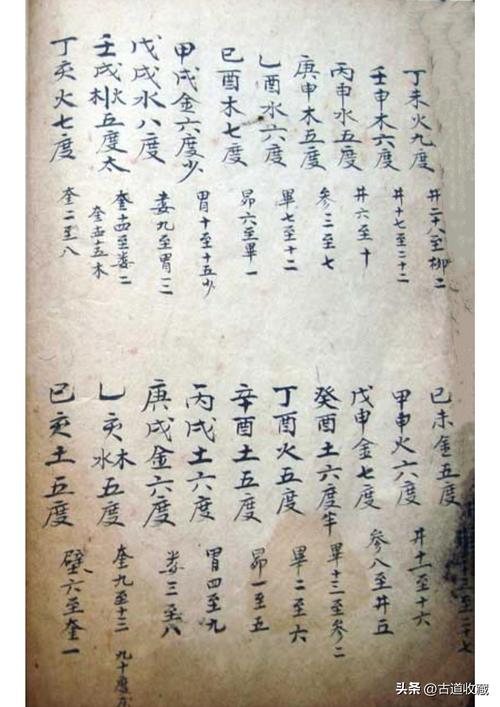 丁未火九度 井二十八至柳二
壬申木六度 井十七至二十二
丙申水五度 井六至十
庚申木五度 参三至七
乙酉水六度 畢七至十二
已酉木七度 昴六至畢一
甲戌金六度少 胃十至十五少
戊戌水八度 婁九至胃一二
壬戌木火五度太 奎十四至婁二
丁亥火七度 奎二至八
已未金五度 至二十七
甲申火六度 井十一至十六
戊申金七度 参八至井五
癸酉土六度半 畢十三至参二
丁酉火五度 畢二至六
辛酉土五度 昴一至五
丙戌土六度 胃四至九
庚戌金六度 婁三至八
乙亥水木五度 奎九至十三 九十度
已亥土五度 壁六至奎一
头条 @古道收藏